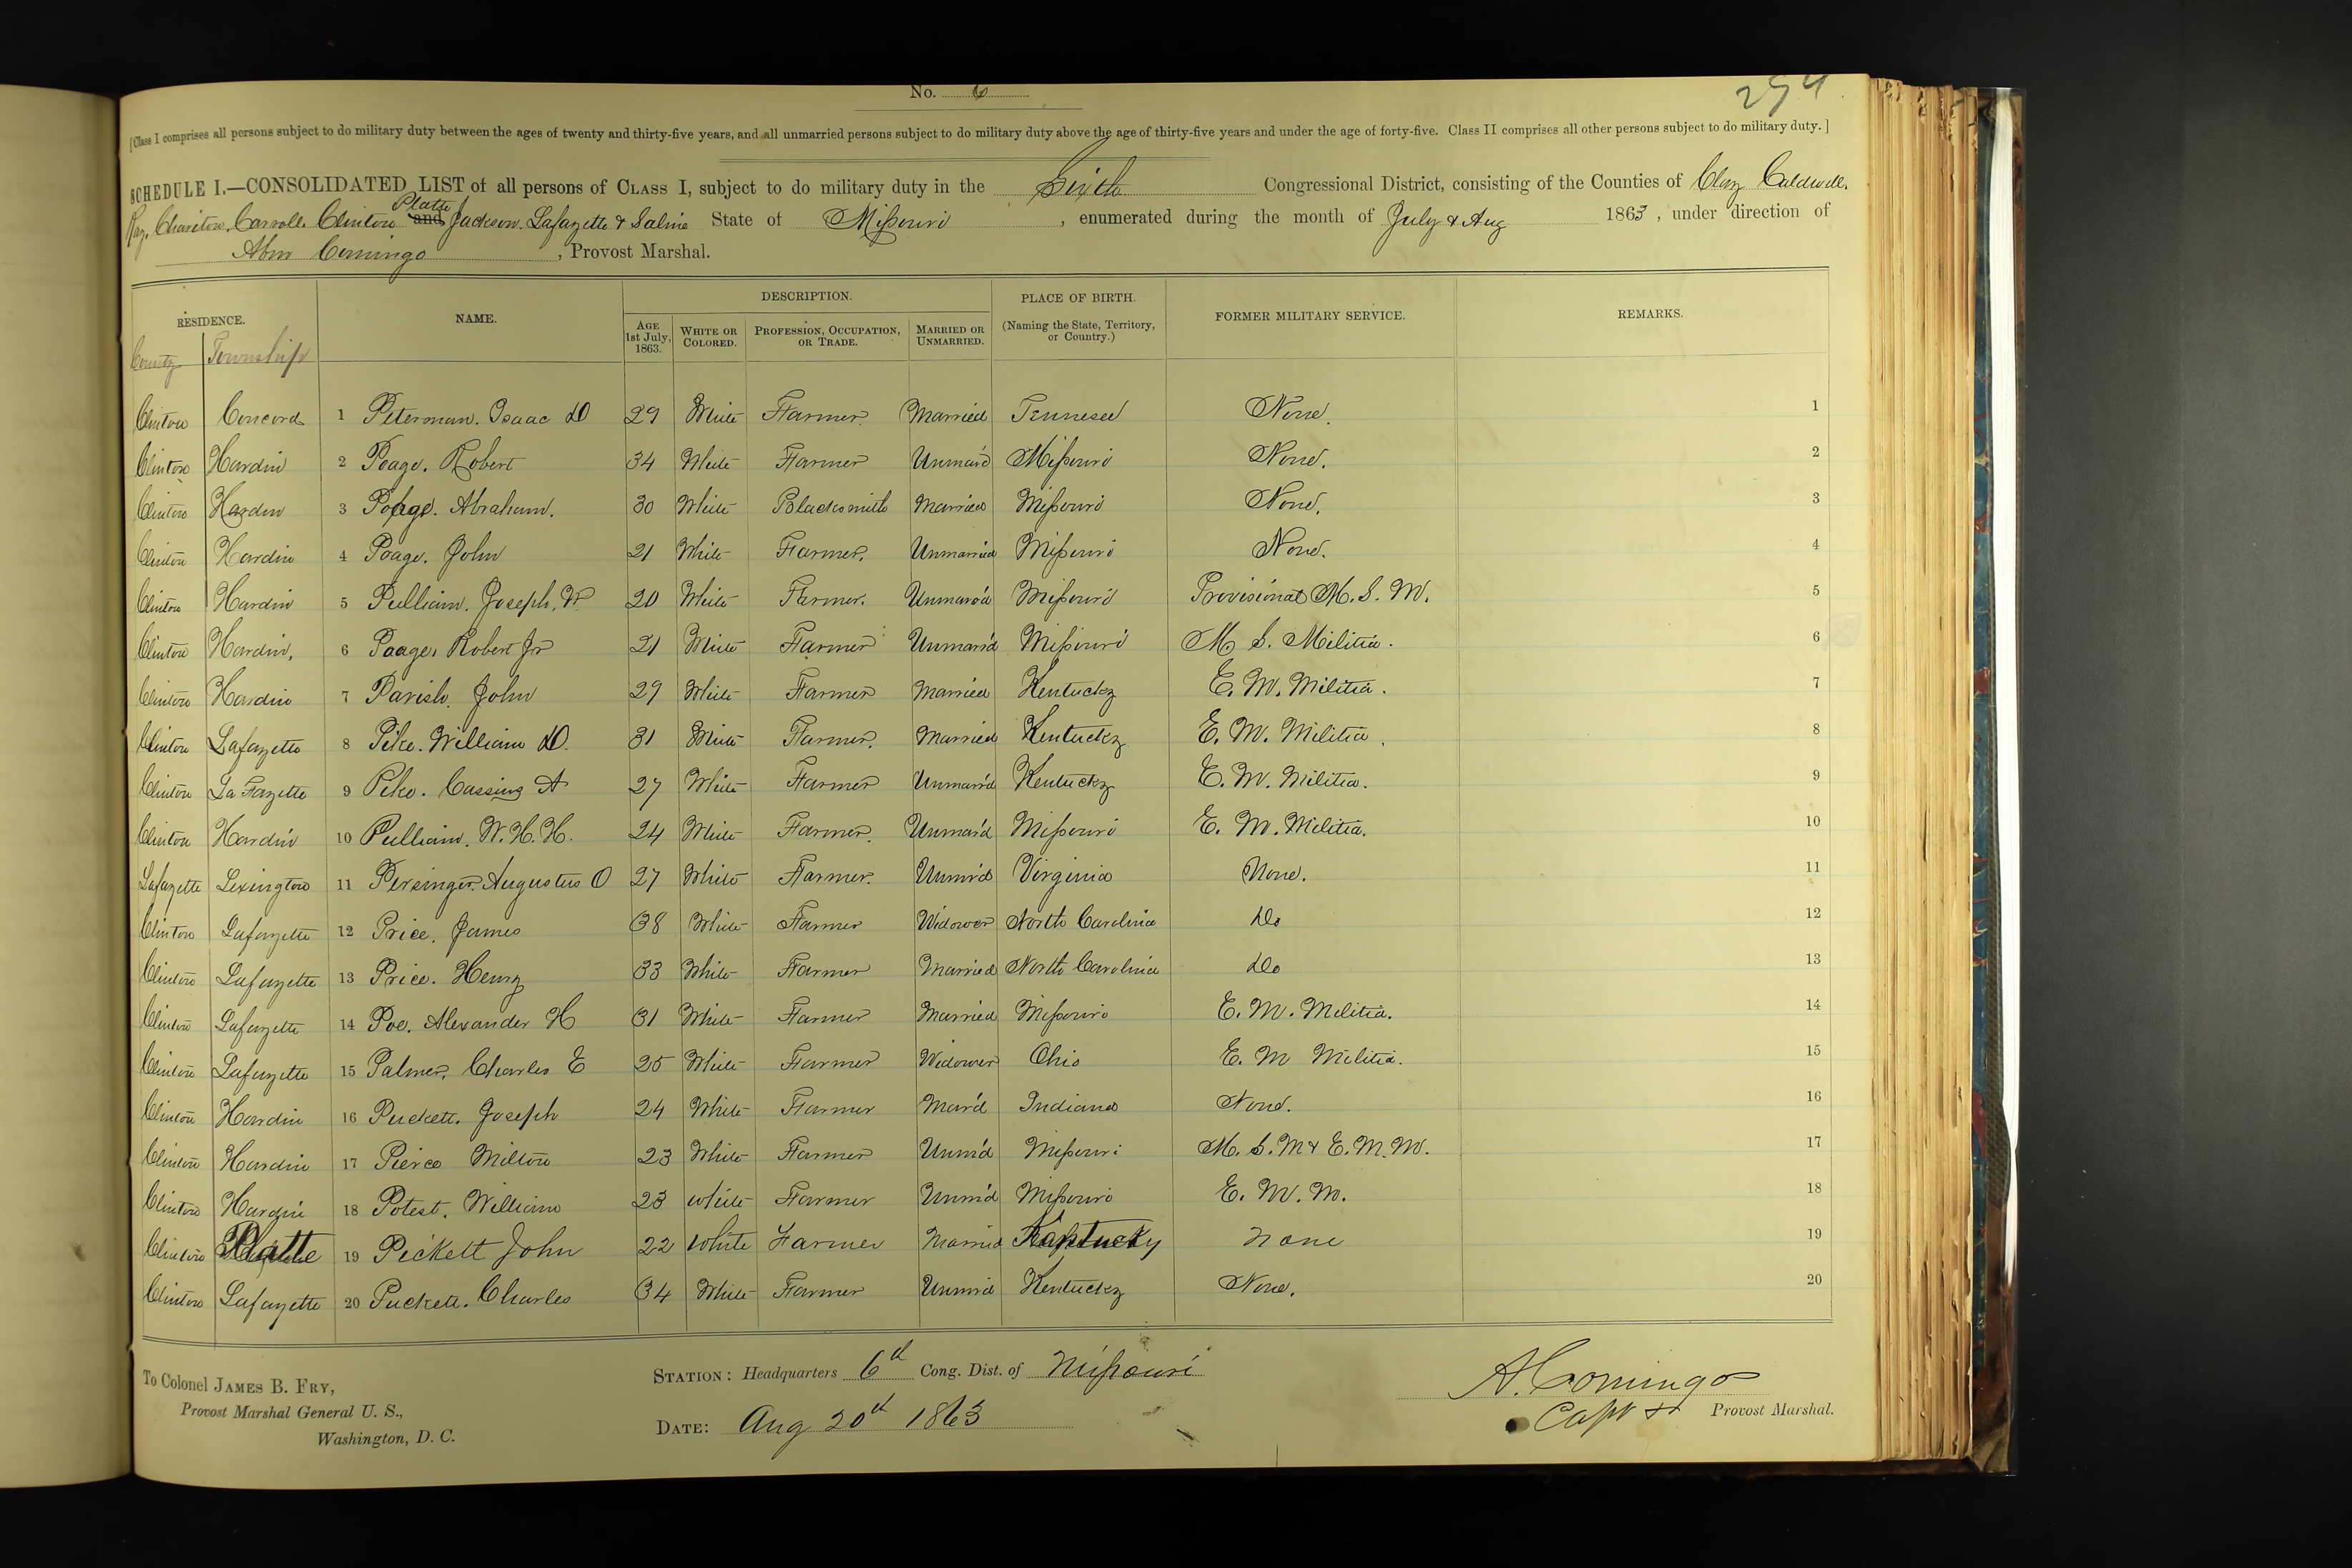 No. 6
294
[Class I comprises all persons subject to do military duty between the ages of twenty and thirty-five years, and all unmarried persons subject to do military duty above the age of thirty-five years and under the age of forty-five. Class II comprises all other persons subject to do military duty.]
SCHEDULE I.—CONSOLIDATED LIST of all persons of CLASS I, subject to do military duty in the Sixth Congressional District, consisting of the Counties of Clay Caldwell,
Ray, Chariton, Carroll, Clinton Platte and Jackson, Lafayette & Saline State of Missouri, enumerated during the month of July & Aug 1863, under direction of
Abm Comingo, Provost Marshal.
RESIDENCE. NAME. DESCRIPTION. PLACE OF BIRTH. (Naming the State, Territory, or Country.) FORMER MILITARY SERVICE. REMARKS.
County Township AGE 1st July, 1863. WHITE OR COLORED. PROFESSION, OCCUPATION, OR TRADE. MARRIED OR UNMARRIED.
Clinton Concord 1 Peterman. Isaac D 29 White Farmer. Married Tennesee None. 1
Clinton Hardin 2 Poage. Robert 34 White Farmer Unmar'd Missouri None. 2
Clinton Hardin 3 Poage. Abraham. 30 White Blacksmith Married Missouri None. 3
Clinton Hardin 4 Poage. John 21 White Farmer. Unmarried Missouri None. 4
Clinton Hardin 5 Pulliam. Joseph. W. 20 White Farmer. Unmarr'd Missouri Provisional M. S. M. 5
Clinton Hardin, 6 Poage, Robert Jr 21 White Farmer Unmarr'd Missouri M. S. Militia. 6
Clinton Hardin 7 Parish. John 29 White Farmer Married Kentucky E. M. Militia. 7
Clinton Lafayette 8 Pike. William D. 31 White Farmer. Married Kentucky E. M. Militia. 8
Clinton La Fayette 9 Pike. Cassius A 27 White Farmer Unmarr'd Kentucky E. M. Militia. 9
Clinton Hardin 10 Pulliam. W. H. H. 24 White Farmer. Unmar'd Missouri E. M. Militia. 10
Lafayette Lexington 11 Persinger. Augustus O 27 White Farmer. Unmr'd Virginia None. 11
Clinton Lafayette 12 Price, James 38 White Farmer Widower North Carolina Do 12
Clinton Lafayette 13 Price. Henry 33 White Farmer Married North Carolina Do 13
Clinton Lafayette 14 Poe. Alexander H 31 White Farmer Married Missouri E. M. Militia. 14
Clinton Lafayette 15 Palmer, Charles E 25 White Farmer Widower Ohio E. M Militia. 15
Clinton Hardin 16 Puckett. Joseph 24 White Farmer Mar'd Indiana None. 16
Clinton Hardin 17 Pierce Milton 23 White Farmer Unm'd Missouri M. S. M & E. M. M. 17
Clinton Hardin 18 Potest. William 23 White Farmer Unm'd Missouri E. M. M. 18
Clinton Platte 19 Pickett John 22 White Farmer Married Kentucky none 19
Clinton Lafayette 20 Puckett. Charles 34 White Farmer Unmr'd Kentucky None. 20
To Colonel JAMES B. FRY,
Provost Marshal General U. S.,
Washington, D. C.
STATION: Headquarters 6th Cong. Dist. of Missouri
DATE: Aug 20th 1863
A. Comingo
Capt & Provost Marshal.